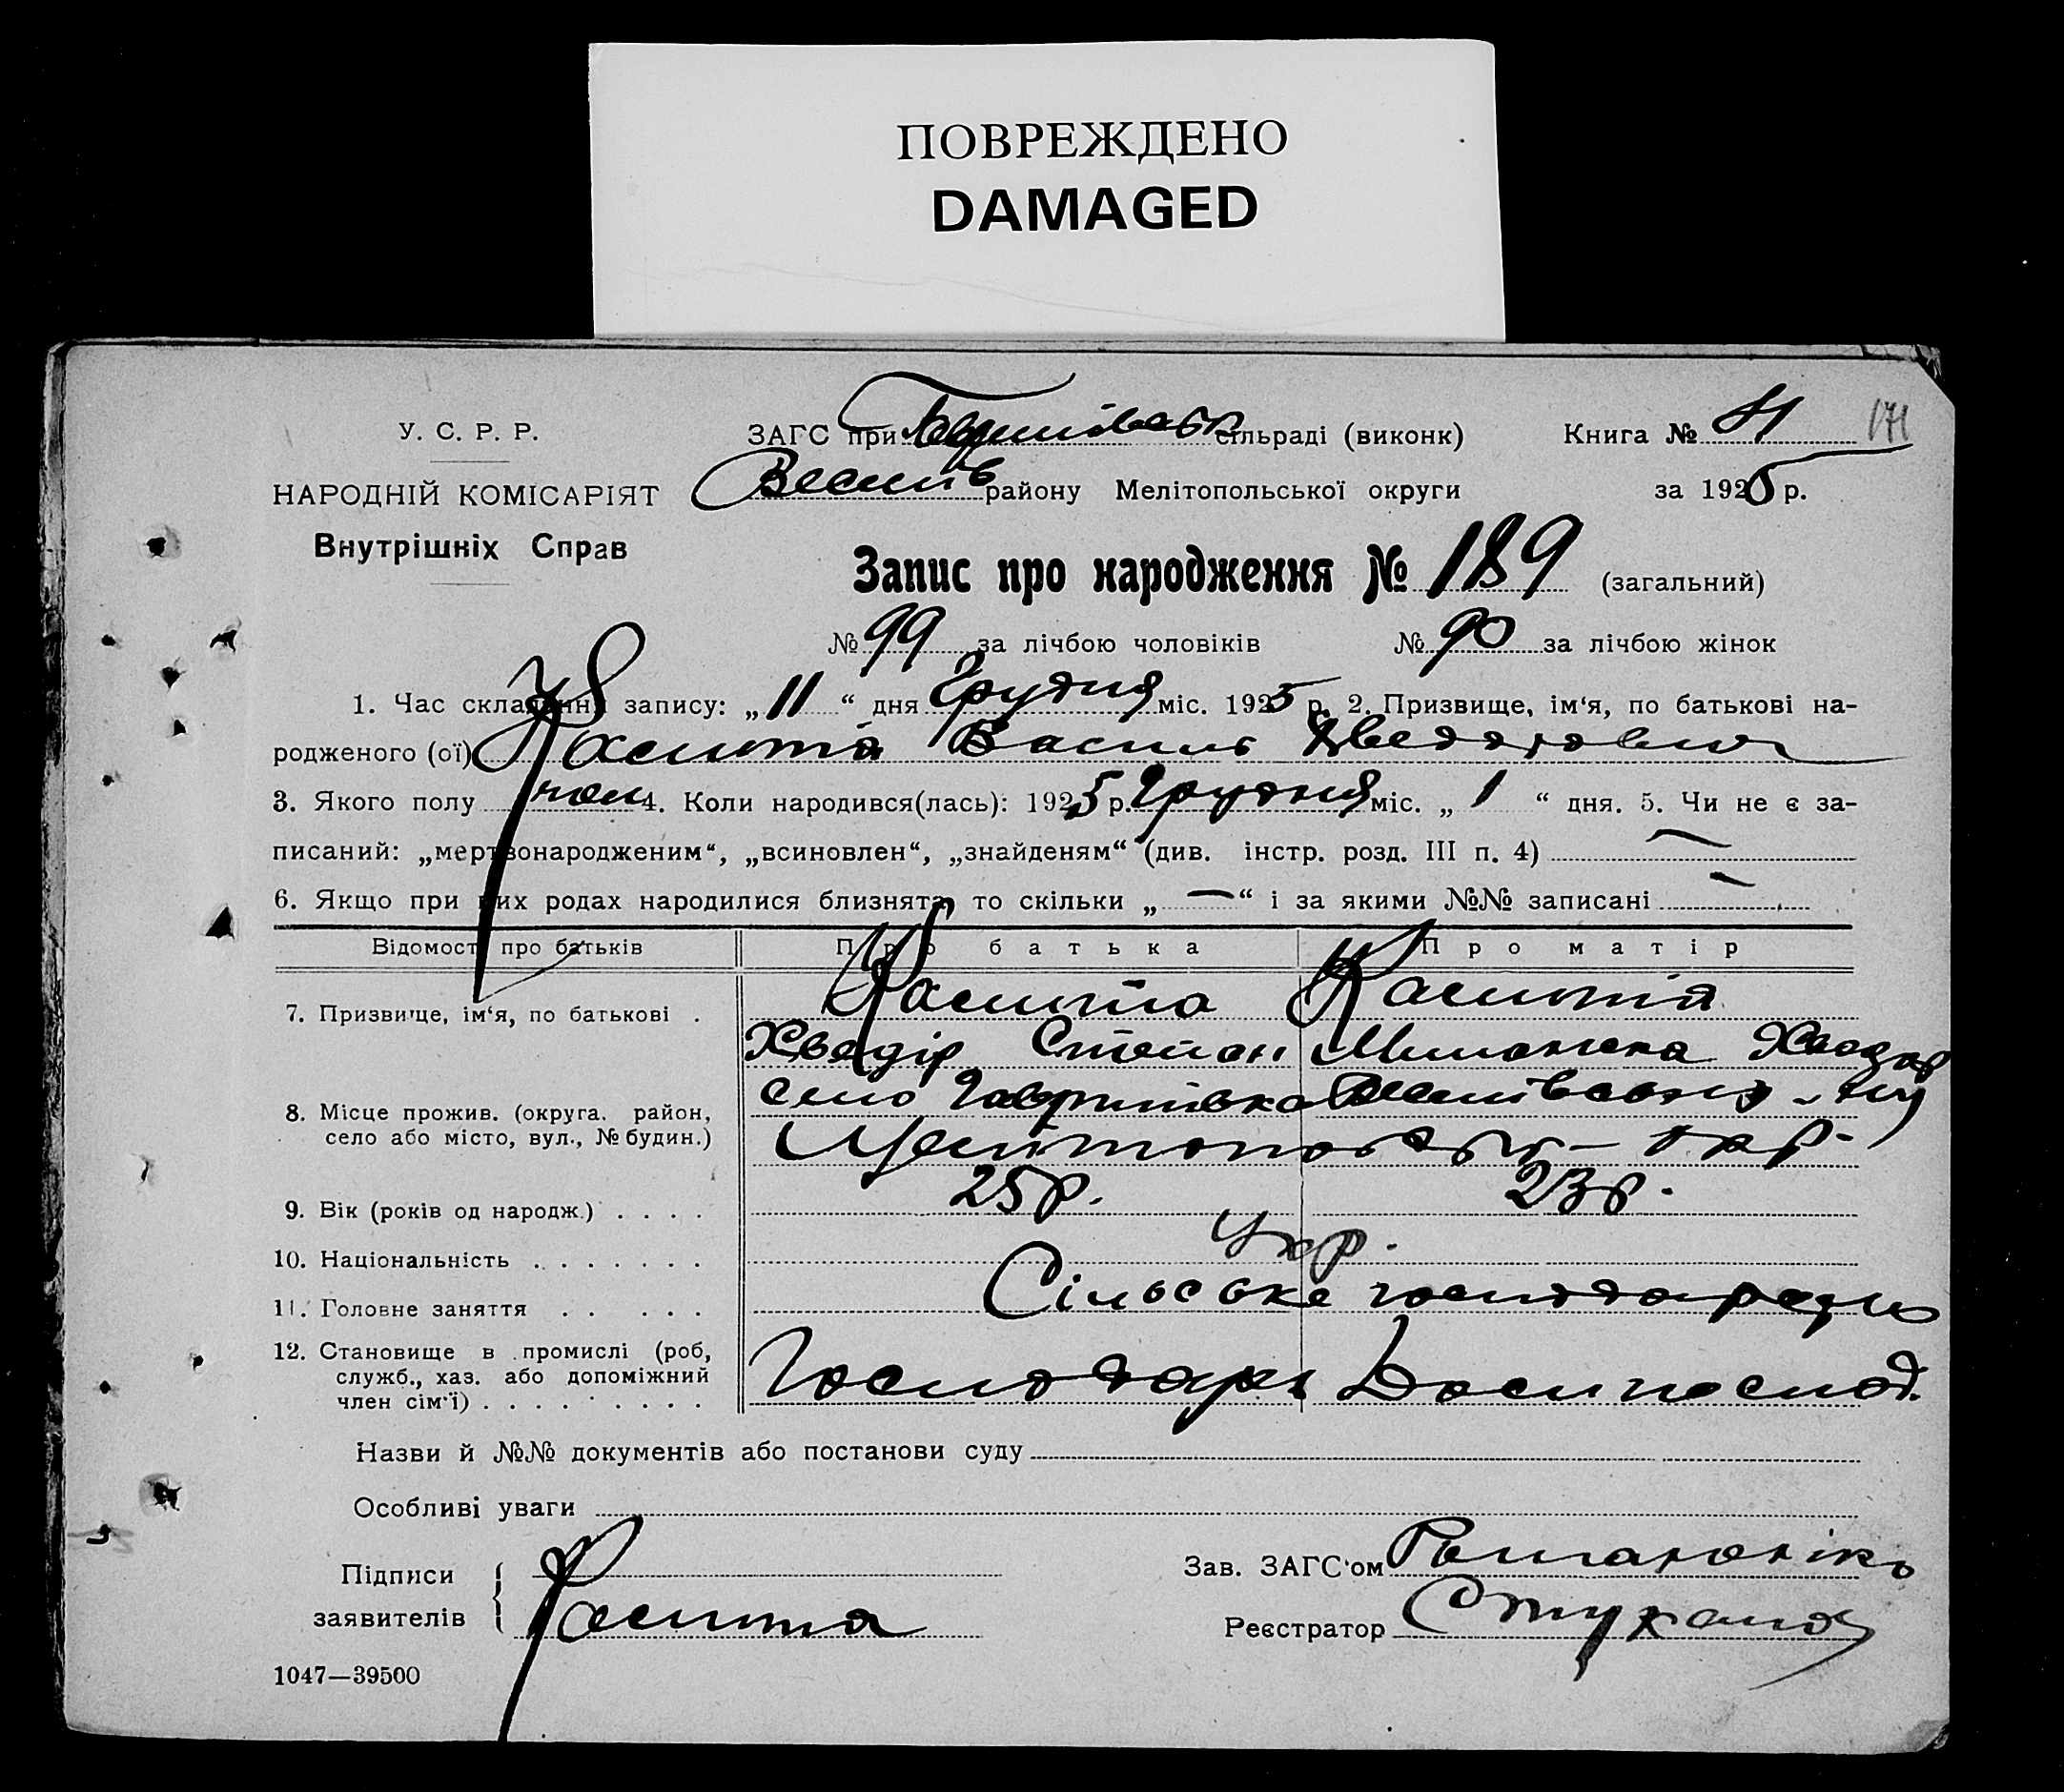 ПОВРЕЖДЕНО
DAMAGED
У. С. Р. Р.
НАРОДНІЙ КОМІСАРІЯТ
Внутрішніх Справ
ЗАГС при сільраді (виконк)
Книга № 171
Веселів району Мелітопольської округи
за 1925 р.
Запис про народження № 189 (загальний)
№ 99 за лічбою чоловіків № 90 за лічбою жінок
1. Час складання запису: „11“ дня Грудня міс. 1925 р. 2. Призвище, ім‘я, по батькові на-
родженого (ої) Василь Хведорович
3. Якого полу чол 4. Коли народився(лась): 1925 р. Грудня міс. „1“ дня. 5. Чи не є за-
писаний: „мертвонародженим“, „всиновлен“, „знайденям“ (див. інстр. розд. III п. 4) —
6. Якщо при цих родах народилися близнята, то скільки „—“ і за якими №№ записані —
Відомості про батьків Про батька Про матір
7. Призвище, ім‘я, по батькові .
Хведір Степан
8. Місце прожив. (округа. район,
село або місто, вул., № будин.)
село Гаврилівка Веселівського
9. Вік (років од народж.) . . . . 25 р. 23 р.
10. Національність . . . . . . . Укр.
11. Головне заняття . . . . . Сільське
12. Становище в промислі (роб,
служб., хаз. або допоміжний
член сім‘ї) . . . . . . . . . Господарь
Назви й №№ документів або постанови суду
Особливі уваги
Підписи
заявителів
Зав. ЗАГС‘ом
Реєстратор
1047—39500